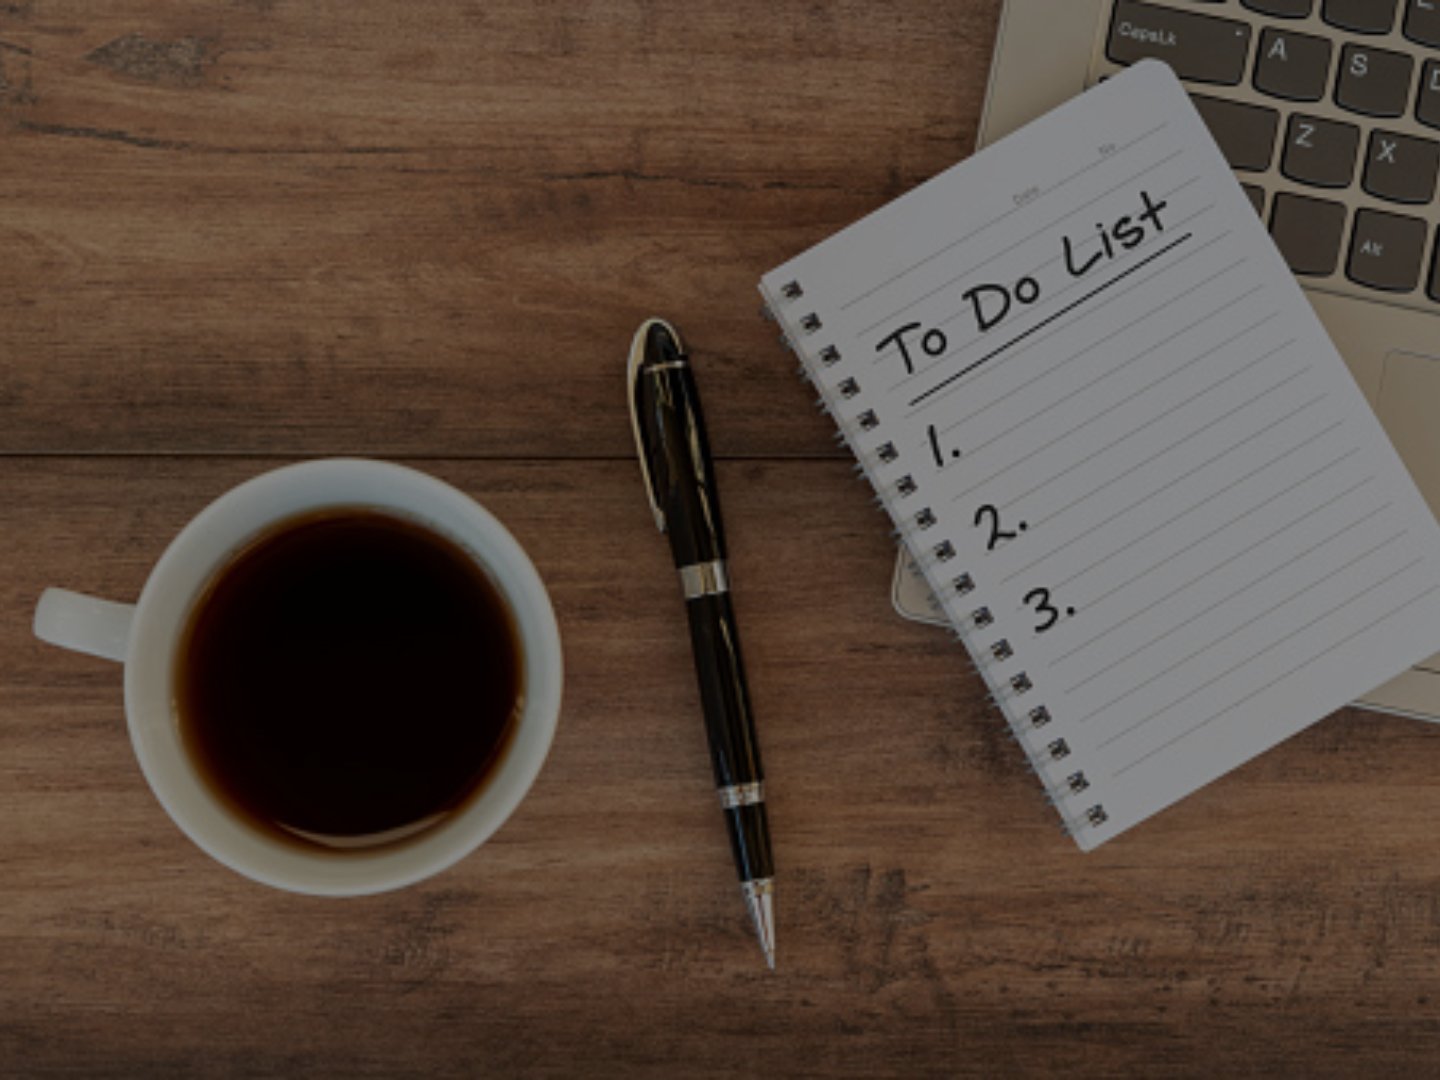 CapsLk
A
S
D
Z
X
Alt
No
Date
To Do List
1.
2.
3.